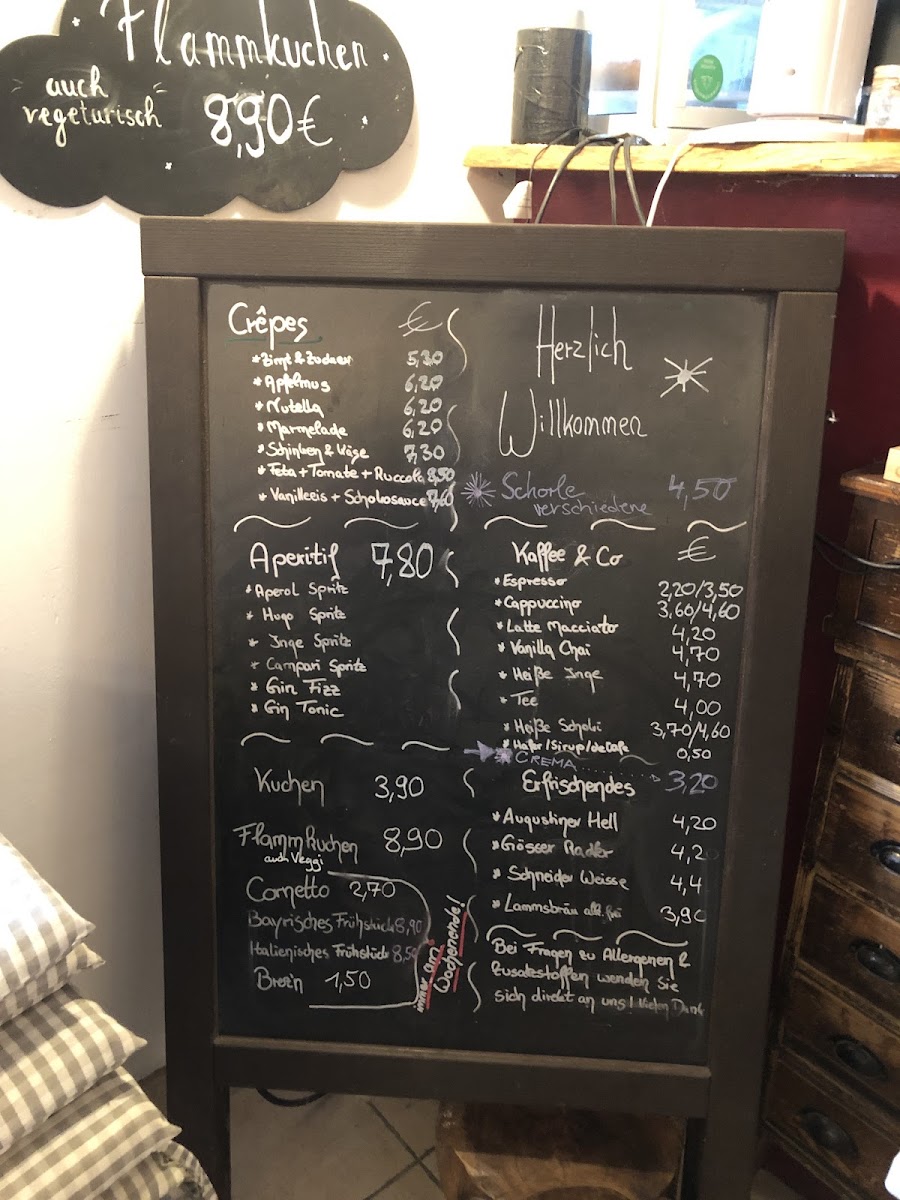 Flammkuchen
auch
vegetarisch
8,90€
Crêpes €
*Zimt & Zucker 5,30
*Apfelmus 6,20
*Nutella 6,20
*Marmelade 6,20
*Schinken & Käse 7,30
*Feta+Tomate+Ruccola 8,50
*Vanilleeis + Schokosauce 7,60
Aperitif 7,80
*Aperol Spritz
*Hugo Spritz
*Inge Spritz
*Campari Spritz
*Gin Fizz
*Gin Tonic
Kuchen 3,90
Flammkuchen 8,90
auch Veggi
Cornetto 2,70
Bayrisches Frühstück 8,90
Italienisches Frühstück 8,50
Brezn 1,50
immer am
Wochenende!
Herzlich
Willkommen
Schorle 4,50
verschiedene
Kaffee & Co €
*Espresso 2,20/3,50
*Cappuccino 3,60/4,60
*Latte Macciato 4,20
*Vanilla Chai 4,70
*Heiße Inge 4,70
*Tee 4,00
*Heiße Schoki 3,70/4,60
*Hafer/Sirup/deCafe 0,50
CREMA 3,20
Erfrischendes
*Augustiner Hell 4,20
*Gösser Radler 4,2
*Schneider Weisse 4,4
*Lammsbräu alk. frei 3,90
Bei Fragen zu Allergenen &
Zusatzstoffen wenden Sie
sich direkt an uns! Vielen Dank